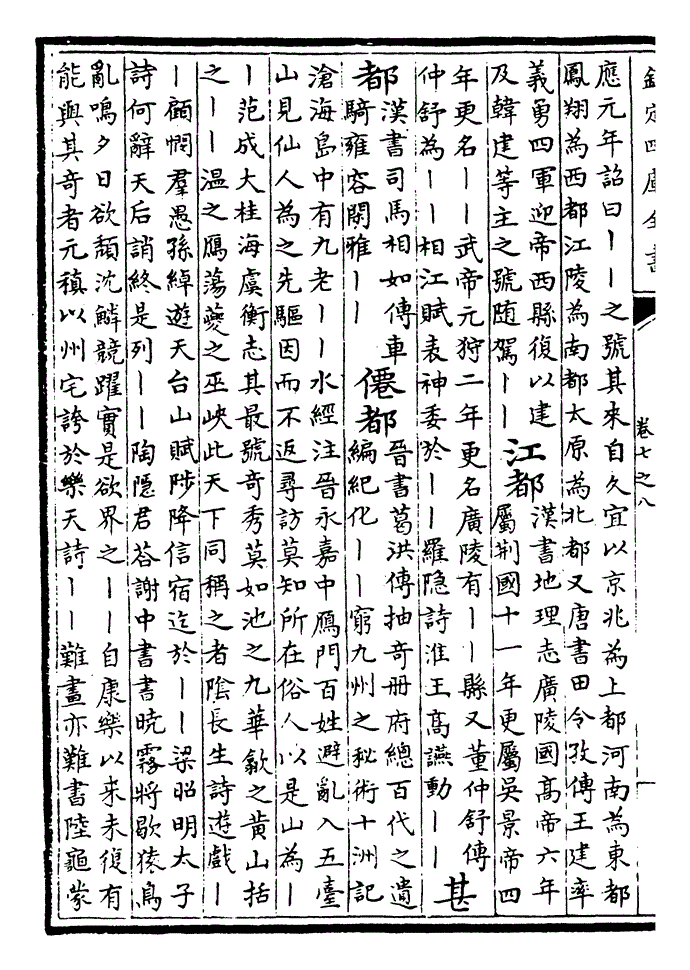 欽定四庫全書
卷七之八
應元年詔曰｜｜之號其來自久宜以京兆為上都河南為東都
鳳翔為西都江陵為南都太原為北都又唐書田令孜傳王建率
義勇四軍迎帝西縣復以建
及韓建等主之號随駕｜｜
江都
漢書地理志廣陵國髙帝六年
屬荆國十一年更屬吳景帝四
年更名｜｜武帝元狩二年更名廣陵有｜｜縣又董仲舒傳
仲舒為｜｜相江賦表神委於｜｜羅隱詩淮王髙讌動｜｜
甚
都
漢書司馬相如傳車
騎雍容閒雅｜｜
僊都
晉書葛洪傳抽奇册府總百代之遺
編紀化｜｜窮九州之秘術十洲記
滄海島中有九老｜｜水經注晉永嘉中鴈門百姓避亂入五臺
山見仙人為之先驅因而不返尋訪莫知所在俗人以是山為｜
｜范成大桂海虞衡志其最號奇秀莫如池之九華歙之黄山括
之｜｜温之鴈蕩夔之巫峽此天下同稱之者陰長生詩遊戲｜
｜顧憫羣愚孫綽遊天台山賦陟降信宿迄於｜｜梁昭明太子
詩何辭天后誚終是列｜｜陶隱君荅謝中書書曉霧將歇猿鳥
亂鳴夕日欲頽沈鱗競躍實是欲界之｜｜自康樂以來未復有
能與其奇者元稹以州宅誇於樂天詩｜｜難畫亦難書陸龜蒙